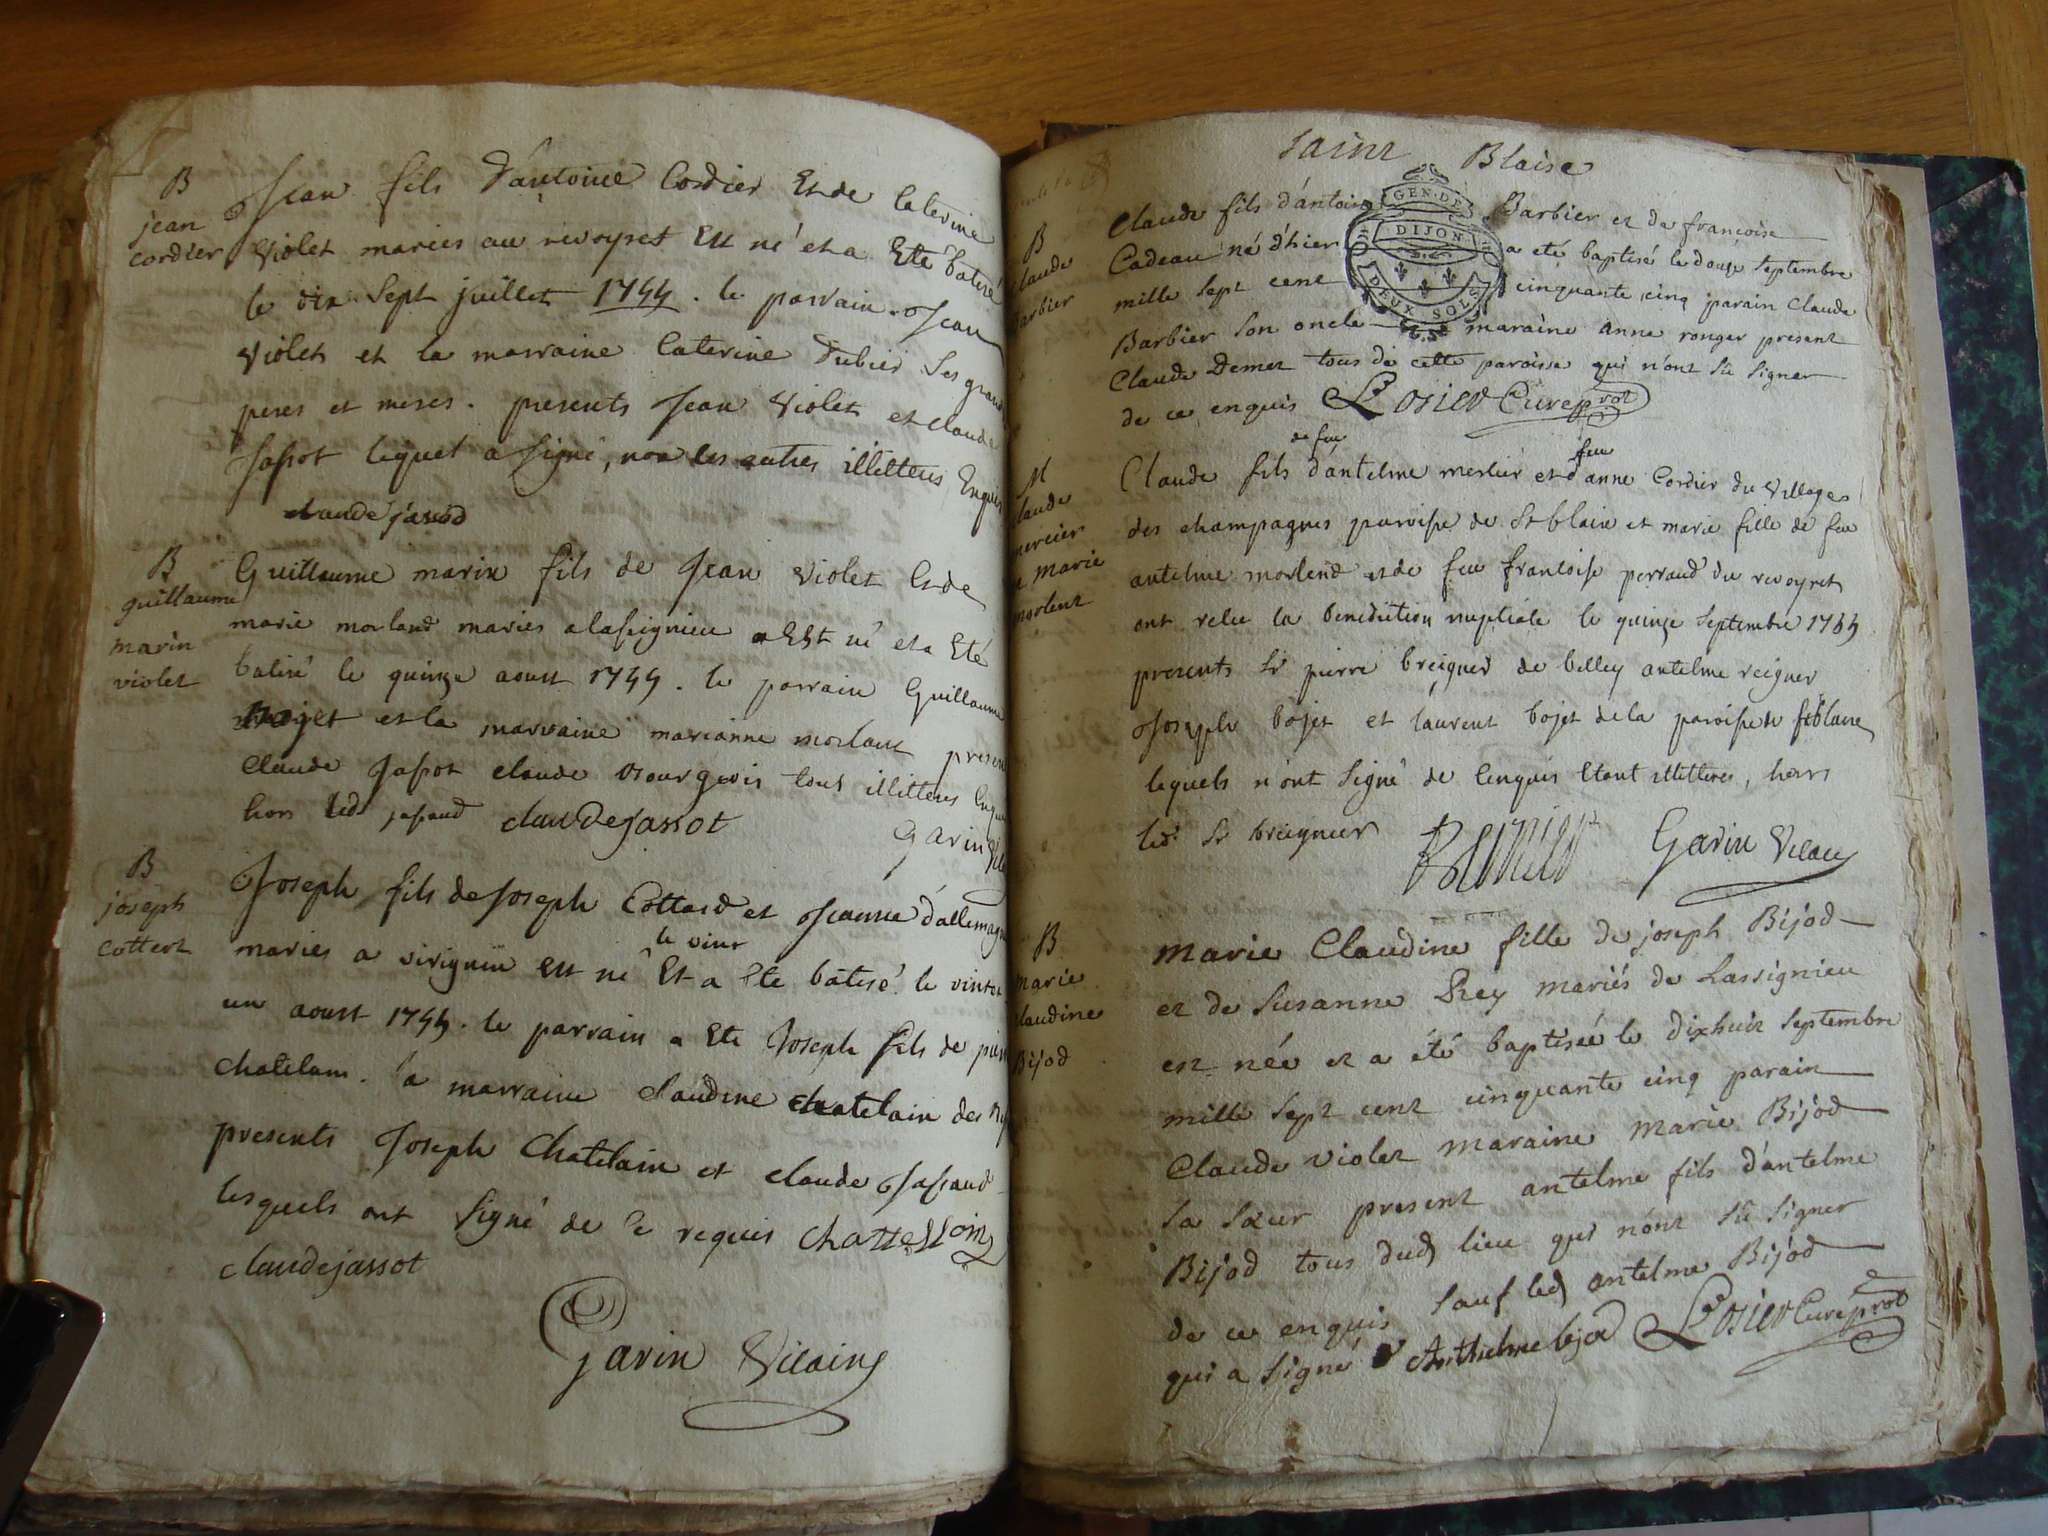 B
jean
cordier
Jean fils d'antoine Cordier Et de Caterine
Violet maries au revoyret Est né et a Eté batisé
le dix sept juillet 1755. le parrain Jean
Violet et la marraine Caterine Dubied Ses grand
peres et meres. presents Jean Violet et Claude
Jassot lequel a signé, non les autres illitteres Enquis
claude jassod
B
guillaume
marin
violet
Guillaume marin fils de Jean Violet Et de
marie morland maries a lassignieu Est né et a Eté
batisé le quinze aoust 1755. le parrain Guillaume
et la marraine marianne morland present
Claude Jassot claude Bourgeois tous illitteres
hors led jassaud claudejassot
Garin
B
joseph
cottert
Joseph fils de Joseph Cottard et Jeanne d'allemagne
maries a virignin Est né le vint Et a Ete batisé le vint et
un aoust 1755. le parrain a Ete Joseph fils de
chatelain. la marraine Claudine chatelain des
presents Joseph Chatelain et claude Jassaud
lesquels ont signé de ce requis Chattellain
claudejassot
Garin Vicaire
Saint Blaise
GEN. DE
DIJON
DEUX SOLS
B
claude
barbier
Claude fils d'antoine Barbier et de françoise
Cadeau né d'hier a eté baptisé le douze Septembre
mille sept cent cinquante cinq parain Claude
Barbier son oncle maraine anne ronger present
Claude Demet tous de cette paroisse qui n'ont sû signer
de ce enquis Losier Curé prot
M
claude
mercier
et Marie
morlent
Claude fils de feu d'antelme mercier et feu d'anne Cordier du village
des champagnes paroisse de St blaise et marie fille de feu
antelme morlend et de feu francoise perraud du revoyret
ont relu la benediction nuptiale le quinze septembre 1755
presents Sr pierre breigner de belley antelme reigner
Joseph bojet et laurent bojet de la paroisse de St blaise
lesquels n'ont signé de Enquis Etant illitteres, hors
led. Sr breigneur Garin Vicaire
B
Marie
claudine
Bijod
Marie Claudine fille de joseph Bijod
et de Susanne Rey mariés de Lassignieu
est née et a été baptisée le dixhuit Septembre
mille sept cent cinquante cinq parain
Claude violet maraine marie Bijod
sa sœur present antelme fils d'antelme
Bijod tous dud lieu qui n'ont sû signer
de ce enquis sauf led antelme Bijod
qui a signé Anthelme bijod Losier Curé prot